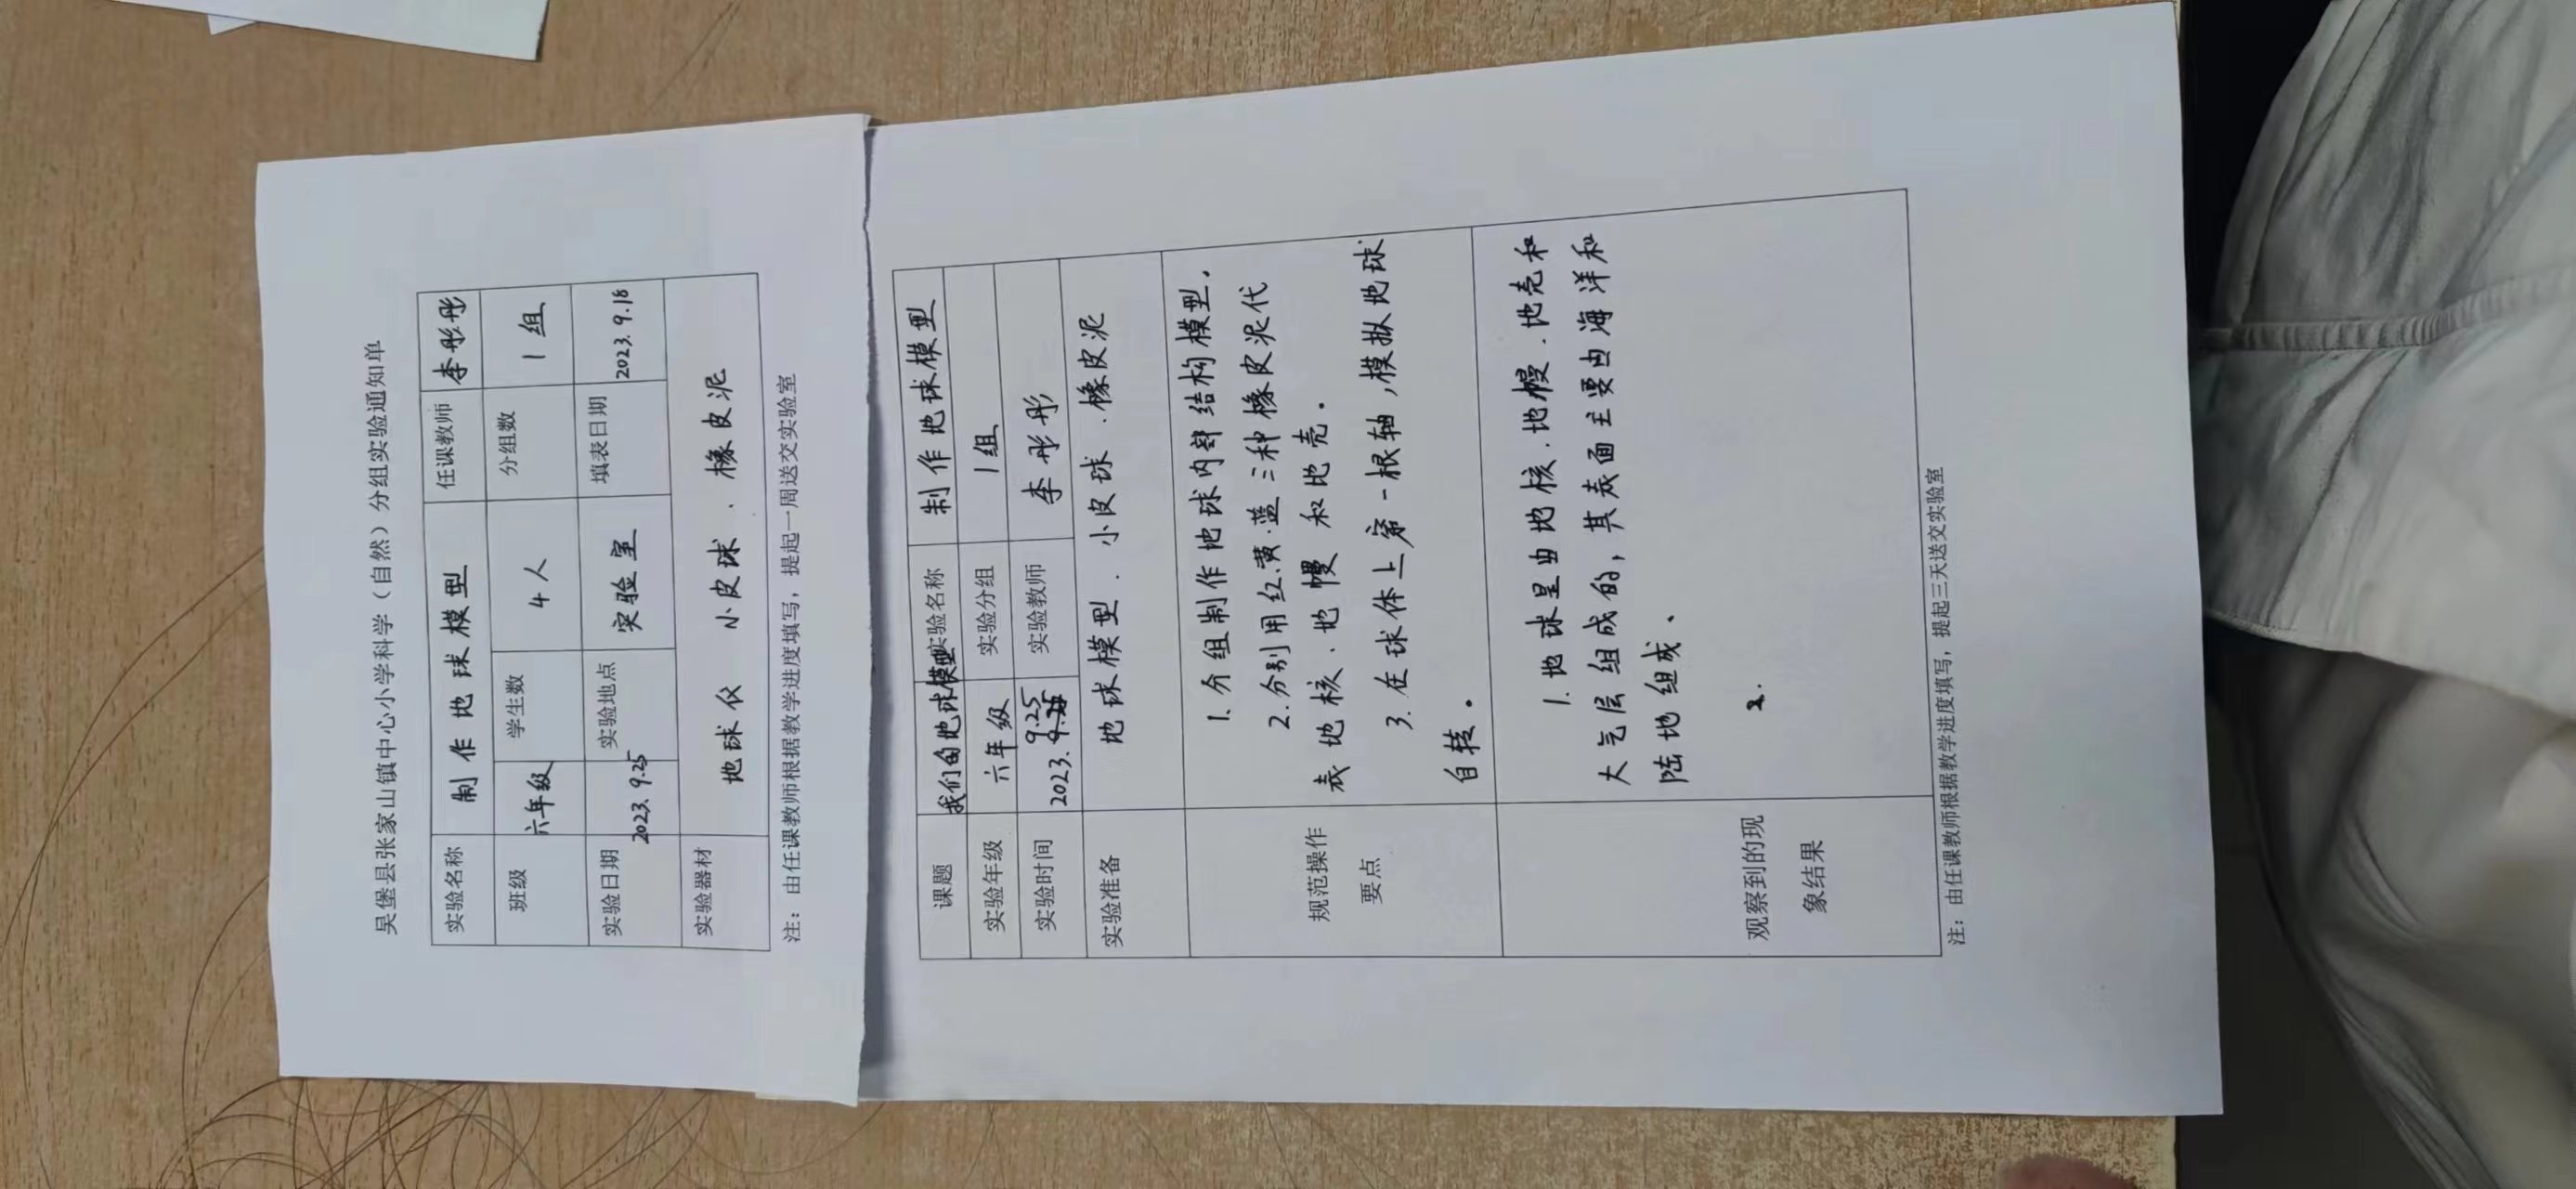 吴堡县张家山镇中心小学科学（自然）分组实验通知单
实验名称 制作地球模型 任课教师 李彤彤
班级 六年级 学生数 4人 分组数 1组
实验日期 2023.9.25 实验地点 实验室 填表日期 2023.9.18
实验器材 地球仪 小皮球、橡皮泥
注：由任课教师根据教学进度填写，提起一周送交实验室
课题 我们的地球模型 实验名称 制作地球模型
实验年级 六年级 实验分组 1组
实验时间 2023.9.25 实验教师 李彤彤
实验准备 地球模型、小皮球、橡皮泥
规范操作
要点
1.分组制作地球内部结构模型.
2.分别用红、黄、蓝三种橡皮泥代
表地核、地幔和地壳。
3.在球体上穿一根轴,模拟地球
自转。
观察到的现
象结果
1.地球是由地核、地幔、地壳和
大气层组成的,其表面主要由海洋和
陆地组成、
2.
注：由任课教师根据教学进度填写，提起三天送交实验室